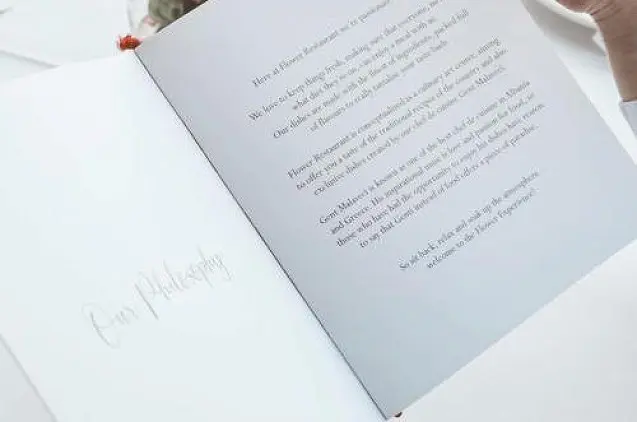 Our Philosophy
Here at Flower Restaurant we're passionate
We love to keep things fresh, making sure that everyone, no
what diet they're on, can enjoy a meal with us.
Our dishes are made with the finest of ingredients, packed full
of flavours to really tantalise your taste buds.
Flower Restaurant is conceptualized as a culinary art center, aiming
to offer you a taste of the traditional recipes of the country and also
exclusive dishes created by our chef de cuisine Gent Malaveci.
Gent Malaveci is known as one of the best chef de cuisine in Albania
and Greece. His inspirational muse is love and passion for food, as
those who have had the opportunity to enjoy his dishes have reason
to say that Genti instead of food offers a piece of paradise.
So sit back, relax and soak up the atmosphere
welcome to the Flower Experience!